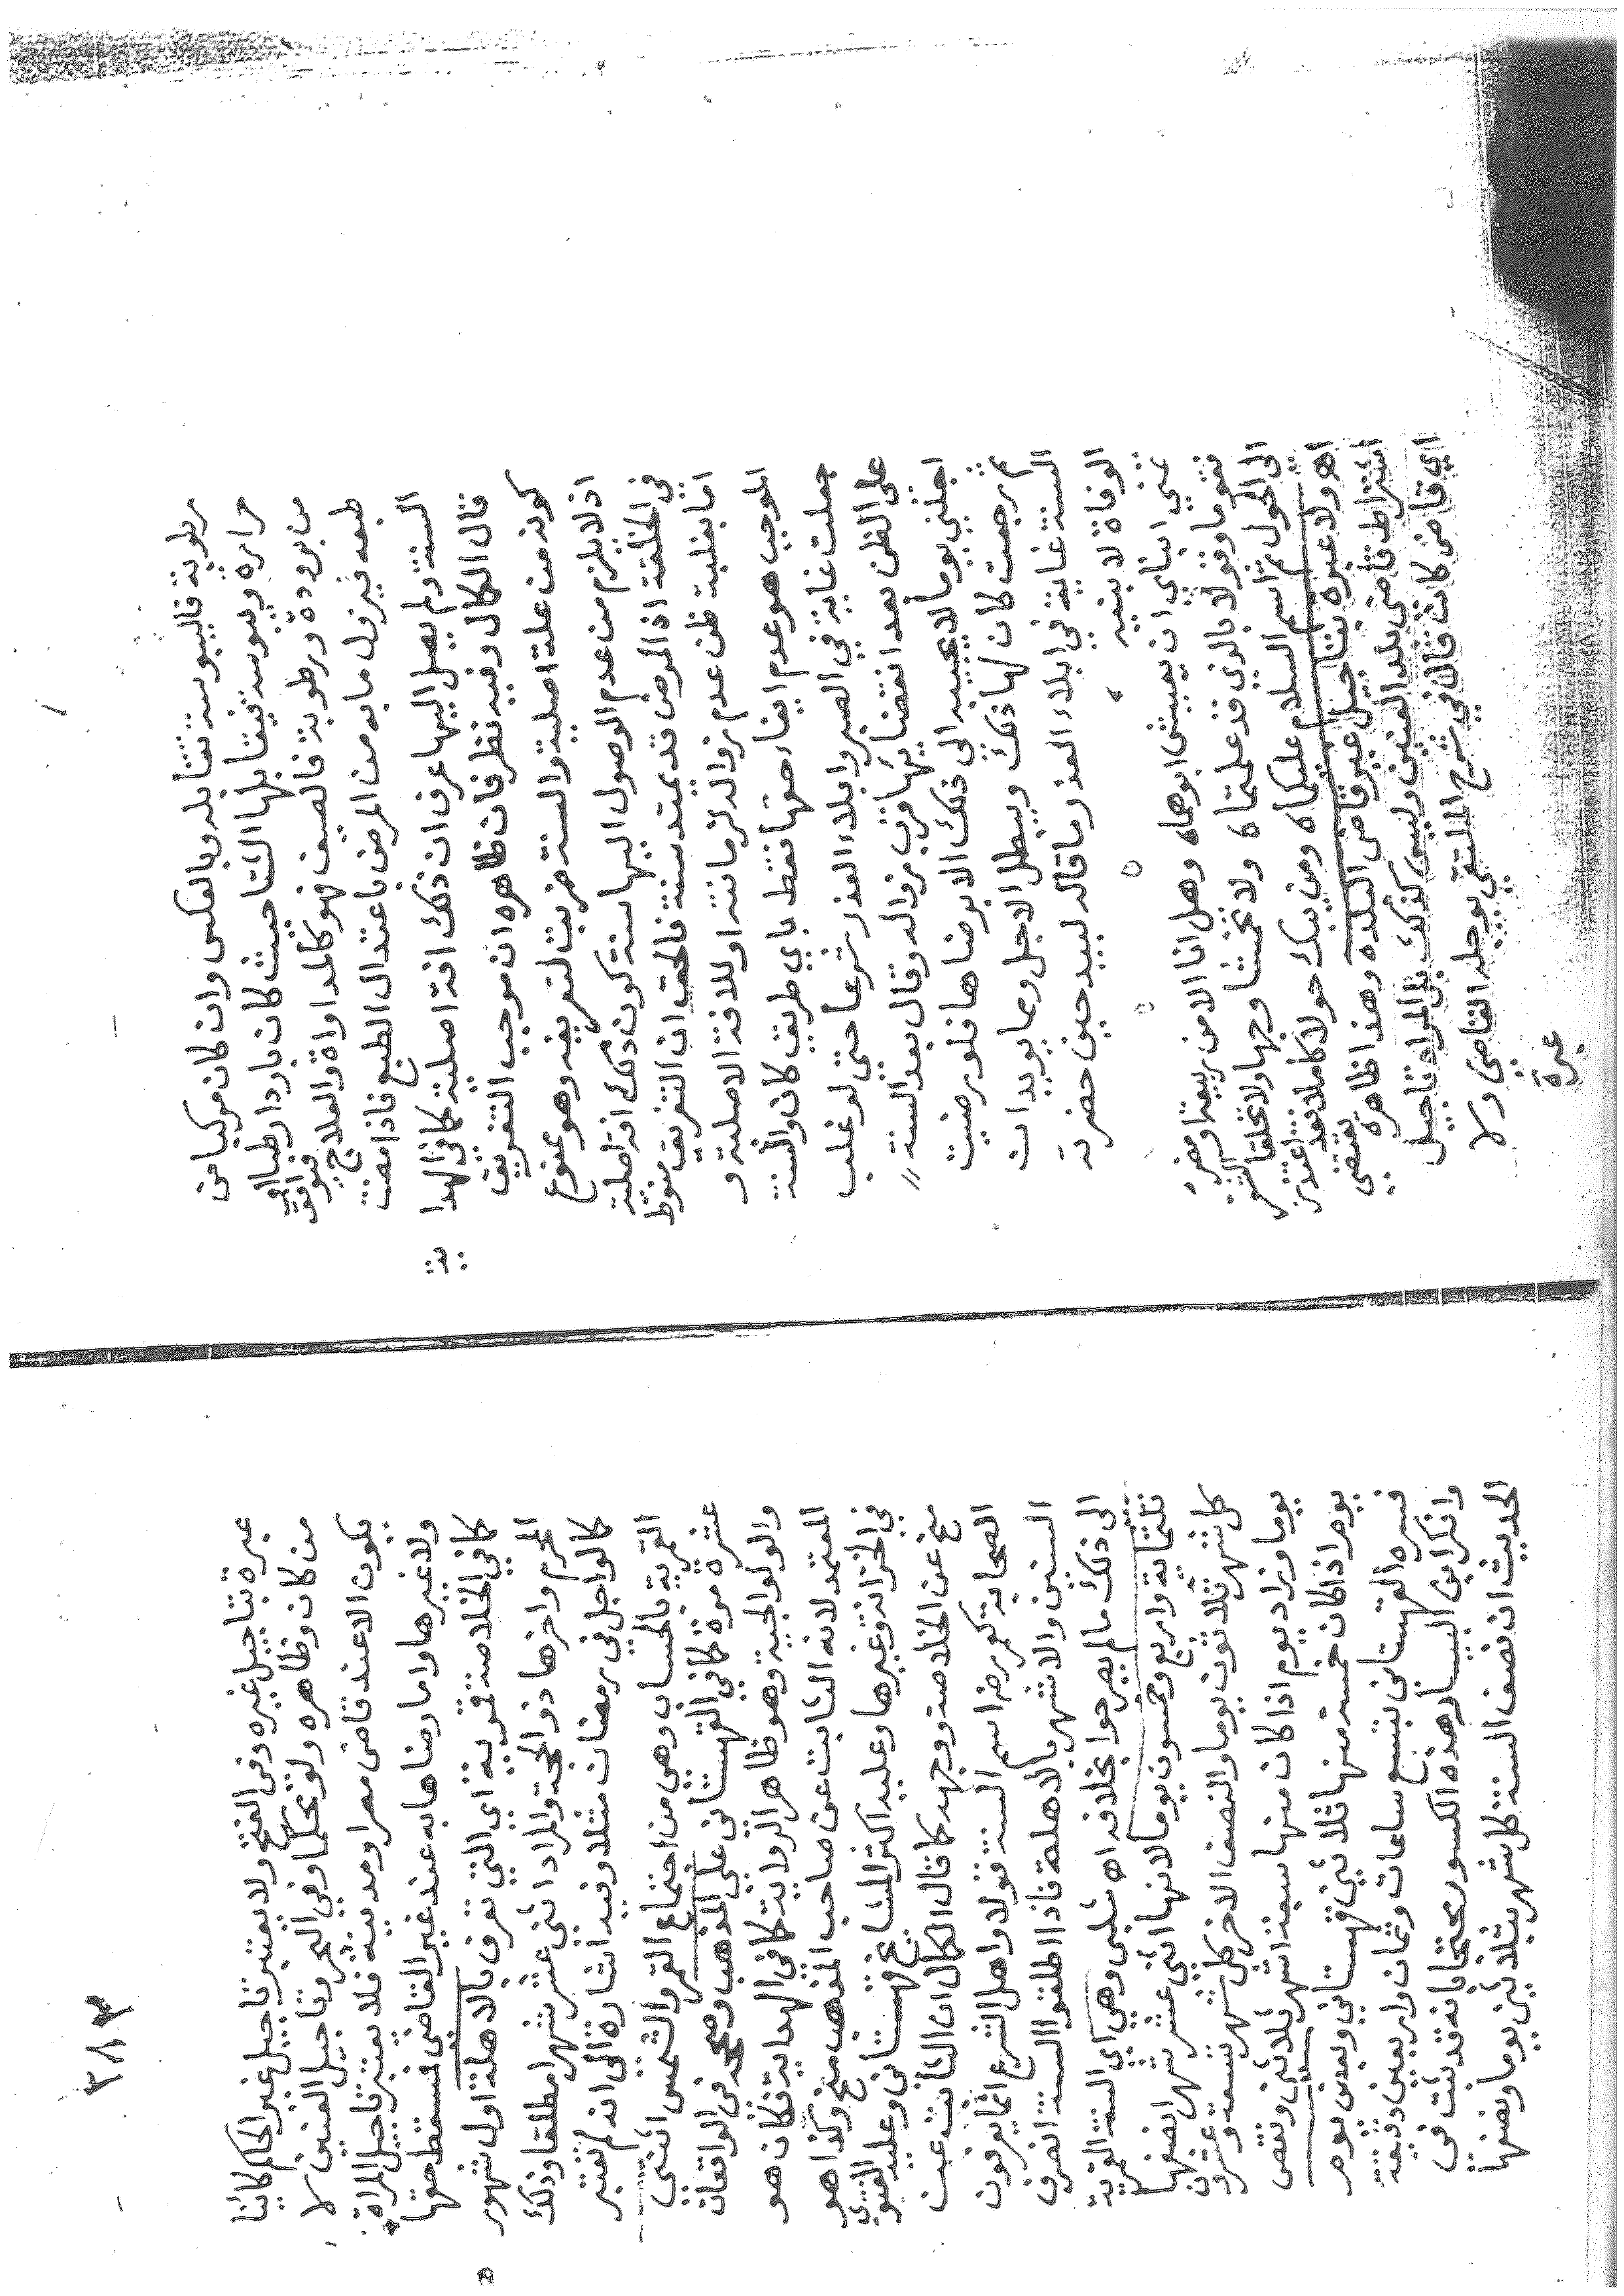 رطوبة فاليبوسة تقابله وبالعكس وان كان مركبا من
حراره ويبوسة فيقابلها الشتا حيث كان باردا رطبا او
من برودة ورطوبة فالصيف فهو كالمداواة والعلاج فيوافق
طبعه فيزول ما به من المرض باعتدال الطبع فاذا مضت
السنة ولم يصل اليها عرف ان ذلك افة اصلية كما في الهدا
قال الكمال وفيه نظر فان ظاهره ان موجب التفريق
كونه من علة اصلية والسنة ضربت لتعريفه وهو ممنوع
اذ لا يلزم من عدم الوصول اليها سنة كون ذلك افة اصلية
في الخلقة اذ المرض قد يمتد سنة فالحق ان التفريق منوط
اما بغلبة ظن عدم زواله لزمانته او للافة الاصلية و
الموجب هو عدم ايفاء حقها فقط باي طريق كان والسنة
جعلت غاية في الصبر وابلاء العذر شرعا حتى لو غلب
على الظن بعد انقضايها قرب زواله وقال بعد السنة
اجلني يوما لا يجيبه الى ذلك الا برضاها فلو رضيت
ثم رجعت كان لها ذلك ويبطل الاجل ومما يريد ان
السنة غاية في ابلاء العذر ما قاله لبيد حين حضرته
الوفاة لابنتيه
تمنى ابنتاي ان يعيش ابوهما ه وهل انا الا من ربيعة او مضر
فقوما وقولا بالذي قد علمتما ه ولا تخمشا وجها ولا تحلقا الشعر
الى الحول ثم اسم السلام عليكما ه ومن يبك حولا كاملا فقد اعتذر
اهـ ولا عبره بتاجيل غير قاضي البلده وهذا ظاهره يقتضي
اشتراط قاضي بلد العنين وليس كذلك بل المراد تاجيل
اي قاضي كان قال في شرح الملتقي يوجله القاضي ولا
عبرة
٢٨٣
عبرة بتاجيل غيره وفي الفتح ولا يعتبر تاجيل غير الحاكم كائنا
من كان وظاهره ولو محكما وفي البحر وتاجيل العنين لا
يكون الا عند قاضي مصر او مدينة فلا يعتبر تاجيل المراة
ولا غيرها واما رضاها به عند غير القاضي فمسقط حقها
كما في الخلاصة قمرية اي التي تعرف بالاهلة اول شهور
المحرم واخرها ذو الحجة والمراد اثني عشر شهرا مطلقا وذلك
كما لو اجل في رمضان مثلا وفيه اشارة الى انه لم تعتبر
القمرية بالحساب وهي من اجتماع القمر والشمس اثنتي
عشرة مرة كما في القهستاني على المذهب وصححه في الواقعات
والولوالجية وهو ظاهر الرواية كما في الهداية فكان هو
المعتمد لانه الثابت عن صاحب المذهب منح وكذا هو
في الخزانة وغيرها وعليه اكثر المشايخ قهستاني وعليه الفتوى
منح عن الخلاصة ووجهه كما قال الكمال ان الثابت عن
الصحابة كعمر رضه اسم السنة قولا واهل الشرع انما يعرفون
السنين والاشهر بالاهلة فاذا اطلقوا السنة انصرف
الى ذلك ما لم يصرحوا بخلافه اهـ شلبي وهي اي السنة القمرية
ثلثماية واربع وخمسون يوما لانها اثني عشر شهرا نصفها
كل شهر ثلاثون يوما والنصف الاخر كل شهر تسعة وعشرون
يوما وزاد يوم اذا كان منها سبعة اشهر ثلاثين ونقص
يوم اذا كان خمسة منها ثلاثين قهستاني وبعض يوم
فسره القهستاني بتسع ساعات وثمان واربعين دقيقة
وانكر ابن البيسار هذه الكسور محتجا بانه قد ثبت في
الحديث ان نصف السنة كل شهر بثلاثين يوما ونصفها